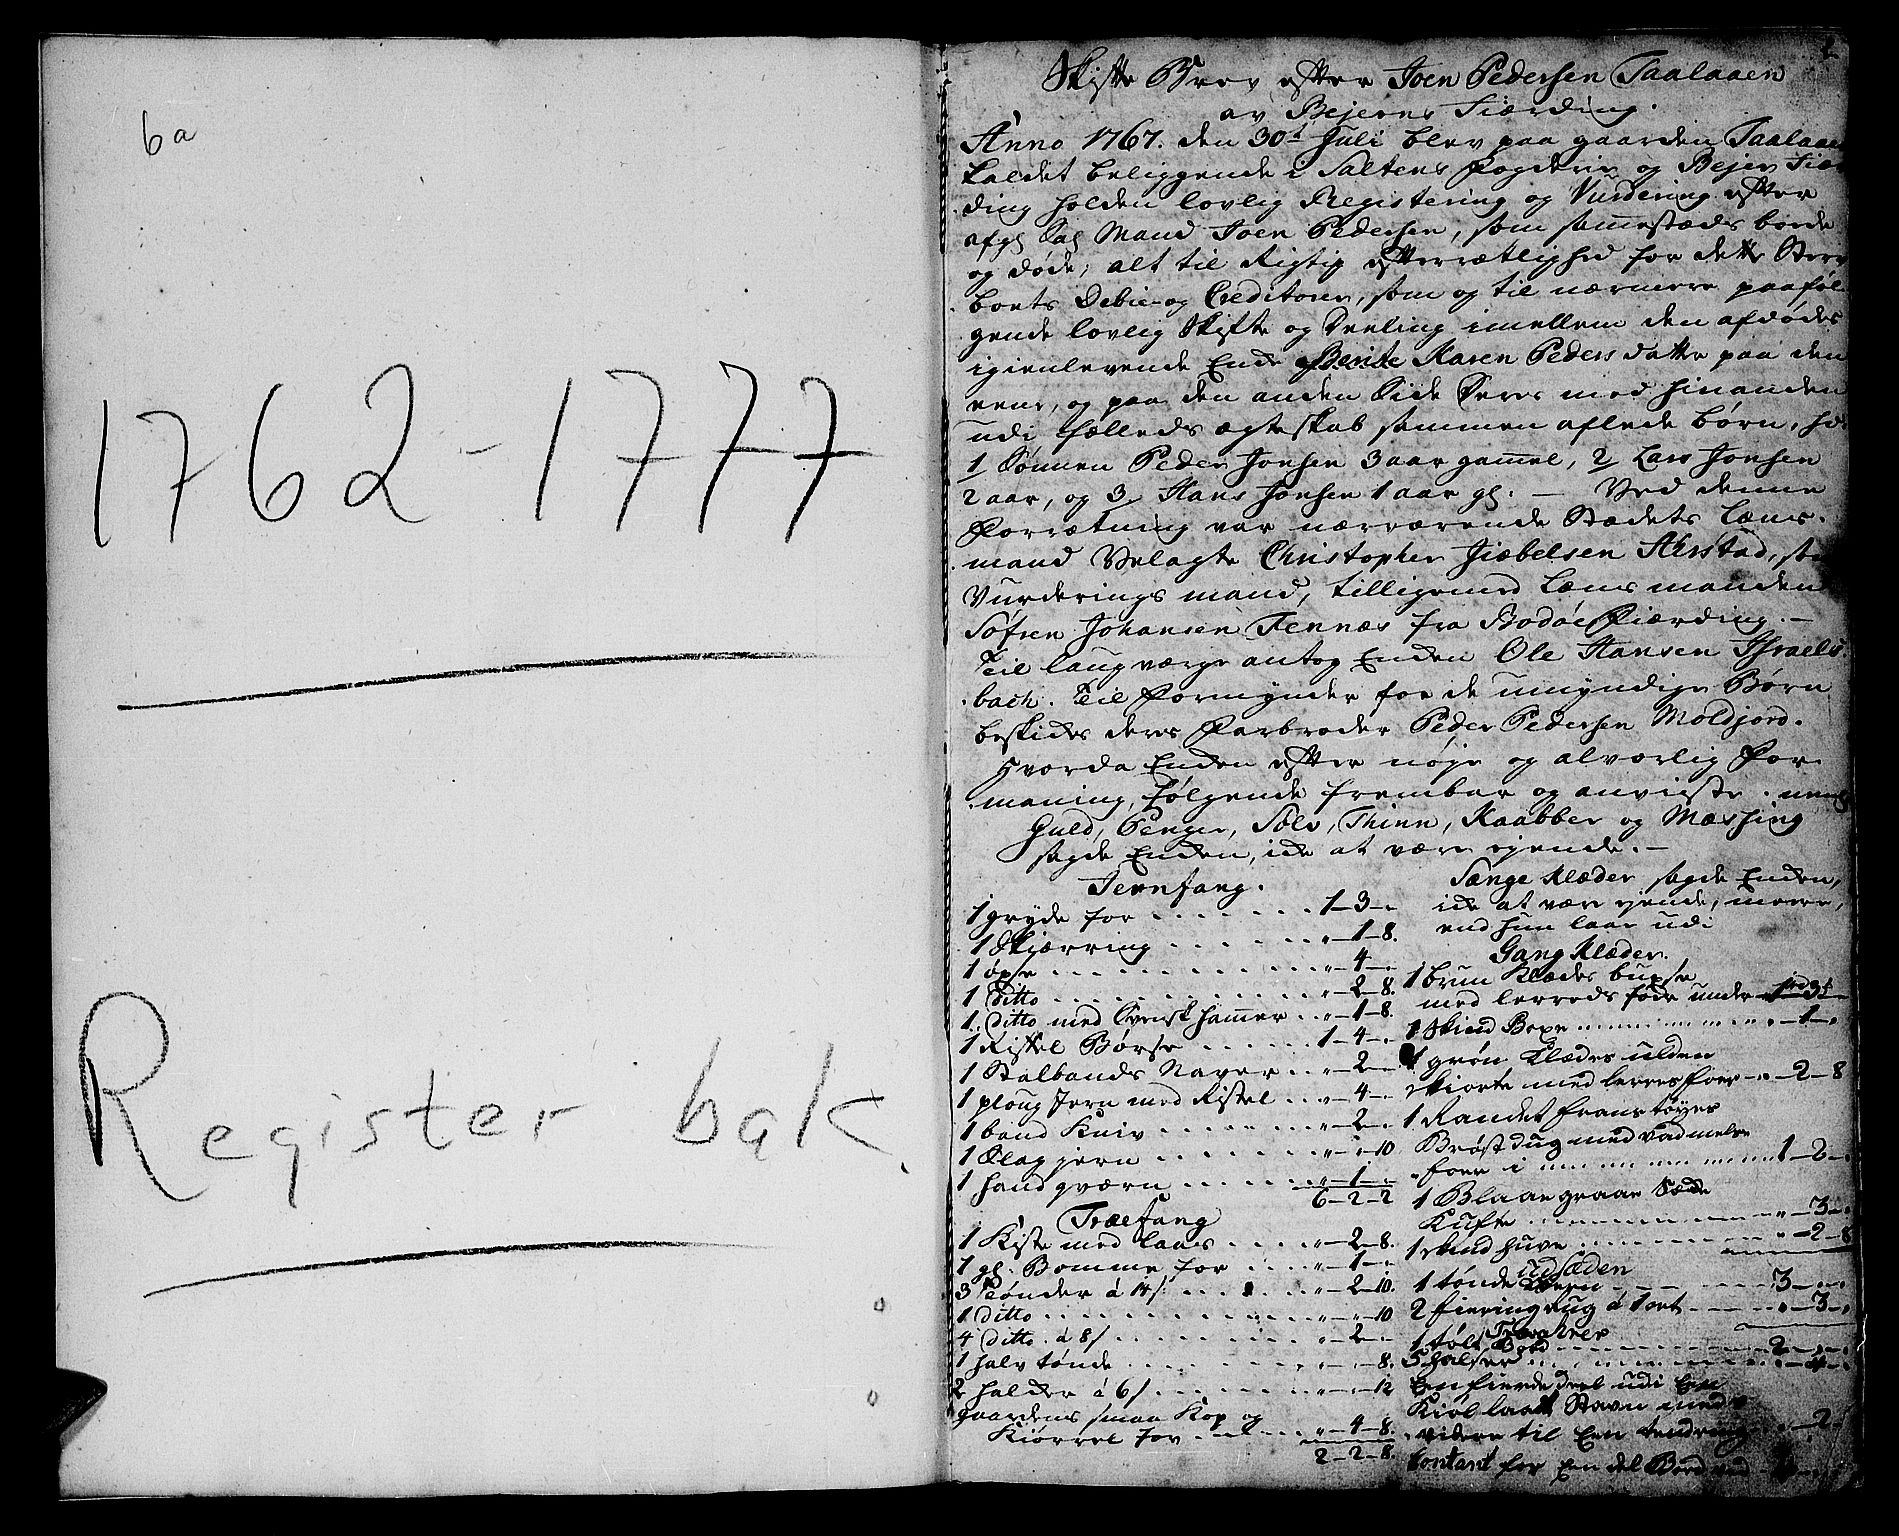 6a
1762-1777
Register bak.
Skifte Brev efter Joen Pedersen Taalaaen
av Bejerns Fiærding.
Anno 1767. den 30te Juli blev paa gaarden Taalaaen
kaldet beliggende i Saltens Fogderie og Bejer Fiær
ding holden lovlig Registering og Vurdering efter
afgl Sal Mand Joen Pedersen, som samestæds boede
og døde; alt til Rigtig efterrætlighed for dette Sterv
boets Debie og Creditorer, som og til nærmere paaføl
gende lovlig Skifte og Deeling imellem den afdødes
igienlevende Enke Karen Peders datter paa den
eene, og paa den anden Side deres med hinanden
udi fælleds ægteskab sammen aflede børn,
1/ Sønnen Peder Jonsen 3 aar gamel, 2/ Lars Jonsen
2 aar, og 3/ Hans Jonsen 1 aar gl. — Ved denne
Forrætning var nærværende Stædets Læns-
mand Velagte Christopher Jiæbelsen Aarstad,
Vurderings mand, tilligemed Lænsmanden
Søfren Johansen Fennæs fra Bodøe Fiærding. —
Til laugværge antog Enken Ole Hansen Israels
bach. Til Formynder for de umyndige Børn
beskides deres Farbroder Peder Pedersen Moldjord.
Hvorda Enken efter nøje og alvorlig For-
maning, følgende frembar og anviiste.
Guld, Penger, Sølv, Thinn, Kaabber og Messing
sagde Enken, ide at være ejende. —
Jernfang.
1 gryde for . . . . . . . 1-3-"
1 Skjærring . . . . . . "-1-8.
1 øxse . . . . . . . . "-4-"
1 ditto . . . . . . . . "-2-8.
1 ditto med Svensk hamer . . "-1-8.
1 Riffel Børse . . . . . . 1-4-"
1 Stalbands Naver . . . "-2-"
1 ploug Jern med Ristel . . . "-4-"
1 band Kniv . . . . . . "-2-"
1 Slag jern . . . . . . "-"-10
1 hand qværn . . . . . "-1-"
6-2-2
Træefang
1 Kiste med laas . . . . "-2-8.
1 gl. Bomme for . . . . "-1-"
3 Tønder á 14/: . . . "-2-10.
1 ditto . . . . . . . . "-"-10
4 ditto á 8/ . . . . . . "-2-"
1 halv tønde . . . . . . "-"-8.
2 halder á 6/ . . . . . . "-"-12
gaardens smaa Kop og
Kiørrel for . . . . . "-4-8.
2-2-8.
Sænge Klæder sagde Enken,
ide at være ejende, meere,
end hun laae udi
Gang Klæder.
1 brun Klædes buxse
med lerreds fode under
1 Skind Boxe . . . . . . "-1-"
1 grøn Klædes ulden
skiorte med lerres foer . "-2-8
1 Randet franstøyes
Brøst dug med vadmels
foer i . . . . . . . 1-2-"
1 Blaae graae
Kufte . . . . . . . "-3-"
1 skind huve . . . . . . "-2-8
udsæden
1 tønde . . . . . . 3-"-"
2 fiering rug á 1 ort . . . "-3-"
. . . . . . . . 2-"-"
5 halser . . . . . . . "-4-"
Een fierde deel udi Een
. . . . . . "-2-"
Contant for Een del Bord